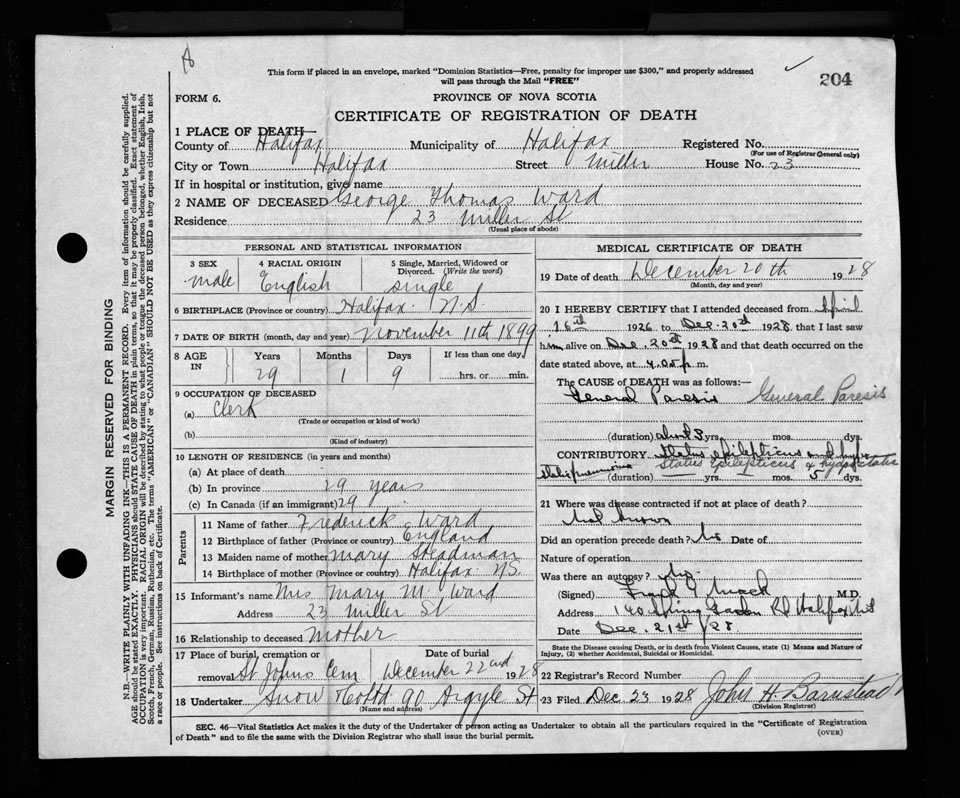 204
This form if placed in an envelope, marked "Dominion Statistics—Free, penalty for improper use $300," and properly addressed
will pass through the Mail "FREE"
FORM 6.
PROVINCE OF NOVA SCOTIA
CERTIFICATE OF REGISTRATION OF DEATH
1 PLACE OF DEATH—
County of Halifax Municipality of Halifax Registered No.
(For use of Registrar General only)
City or Town Halifax Street Miller House No. 23
If in hospital or institution, give name
2 NAME OF DECEASED George Thomas Ward
Residence 23 Miller St
(Usual place of abode)
PERSONAL AND STATISTICAL INFORMATION
3 SEX 4 RACIAL ORIGIN 5 Single, Married, Widowed or
Divorced. (Write the word)
male English single
6 BIRTHPLACE (Province or country) Halifax N.S.
7 DATE OF BIRTH (month, day and year) November 11th 1899
8 AGE IN Years Months Days If less than one day,
29 1 9 hrs. or min.
9 OCCUPATION OF DECEASED
(a) Clerk
(Trade or occupation or kind of work)
(b)
(Kind of industry)
10 LENGTH OF RESIDENCE (in years and months)
(a) At place of death
(b) In province 29 years
(c) In Canada (if an immigrant) 29
Parents
11 Name of father Frederick Ward
12 Birthplace of father (Province or country) England
13 Maiden name of mother Mary Steadman
14 Birthplace of mother (Province or country) Halifax NS.
15 Informant's name Mrs Mary M. Ward
Address 23 Miller St
16 Relationship to deceased mother
17 Place of burial, cremation or Date of burial
removal St Johns Cem December 22nd 1928
18 Undertaker Snow & Co Ltd 90 Argyle St
(Name and address)
MEDICAL CERTIFICATE OF DEATH
19 Date of death December 20th 1928
(Month, day and year)
20 I HEREBY CERTIFY that I attended deceased from April
1926 to Dec. 20th 1928 that I last saw
him alive on Dec. 20th 1928 and that death occurred on the
date stated above, at p. m.
The CAUSE OF DEATH was as follows:—
General Paresis General Paresis
(duration) about 3 yrs. mos. dys.
CONTRIBUTORY Status epilepticus and hypo
static pneumonia Status Epilepticus & hypostatic
(duration) yrs. mos. 5 dys.
21 Where was disease contracted if not at place of death?
Not known
Did an operation precede death? No Date of
Nature of operation
Was there an autopsy?
(Signed) Frank Mack M.D.
Address Spring Garden Rd Halifax N.S
Date Dec. 21st/28
State the Disease causing Death, or in death from Violent Causes, state (1) Means and Nature of
Injury, (2) whether Accidental, Suicidal or Homicidal.
22 Registrar's Record Number
23 Filed Dec 23 1928 John H. Barnstead
(Division Registrar)
SEC. 46—Vital Statistics Act makes it the duty of the Undertaker or person acting as Undertaker to obtain all the particulars required in the "Certificate of Registration
of Death" and to file the same with the Division Registrar who shall issue the burial permit.
(OVER)
MARGIN RESERVED FOR BINDING
N.B.—WRITE PLAINLY WITH UNFADING INK—THIS IS A PERMANENT RECORD. Every item of information should be carefully supplied.
AGE should be stated EXACTLY. PHYSICIANS should STATE CAUSE OF DEATH in plain terms, so that it may be properly classified. Exact statement of
OCCUPATION is very important. RACIAL ORIGIN will be described by stating to what people or tongue the deceased person belonged, whether English, Irish,
Scotch, French, German, Russian, Ruthenian, etc. The terms "AMERICAN" or "CANADIAN" SHOULD NOT BE USED as they express citizenship but not
a race or people. See instructions on back of Certificate.